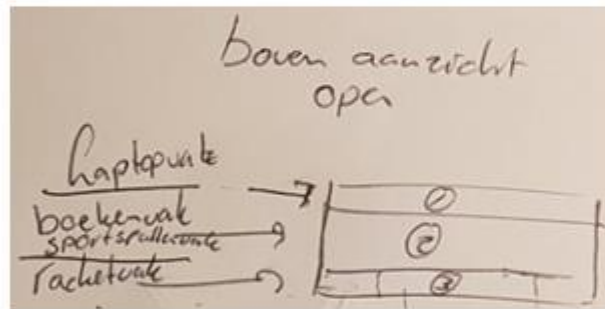 boven aanzicht
open
laptopvak
boekenvak
sportspullenvak
racketvak
1
2
3